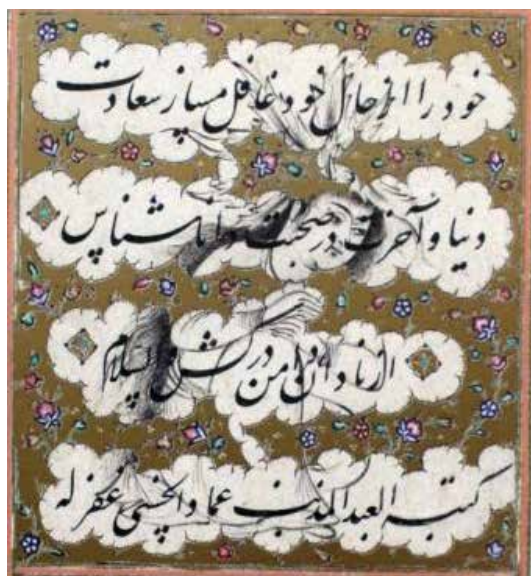 خود را از حال خود غافل مساز سعادت
دنیا و آخرت در صحبت دانا شناس
از نادان دامن درکش والسلام
کتبه العبد المذنب عماد الحسنی غفر له